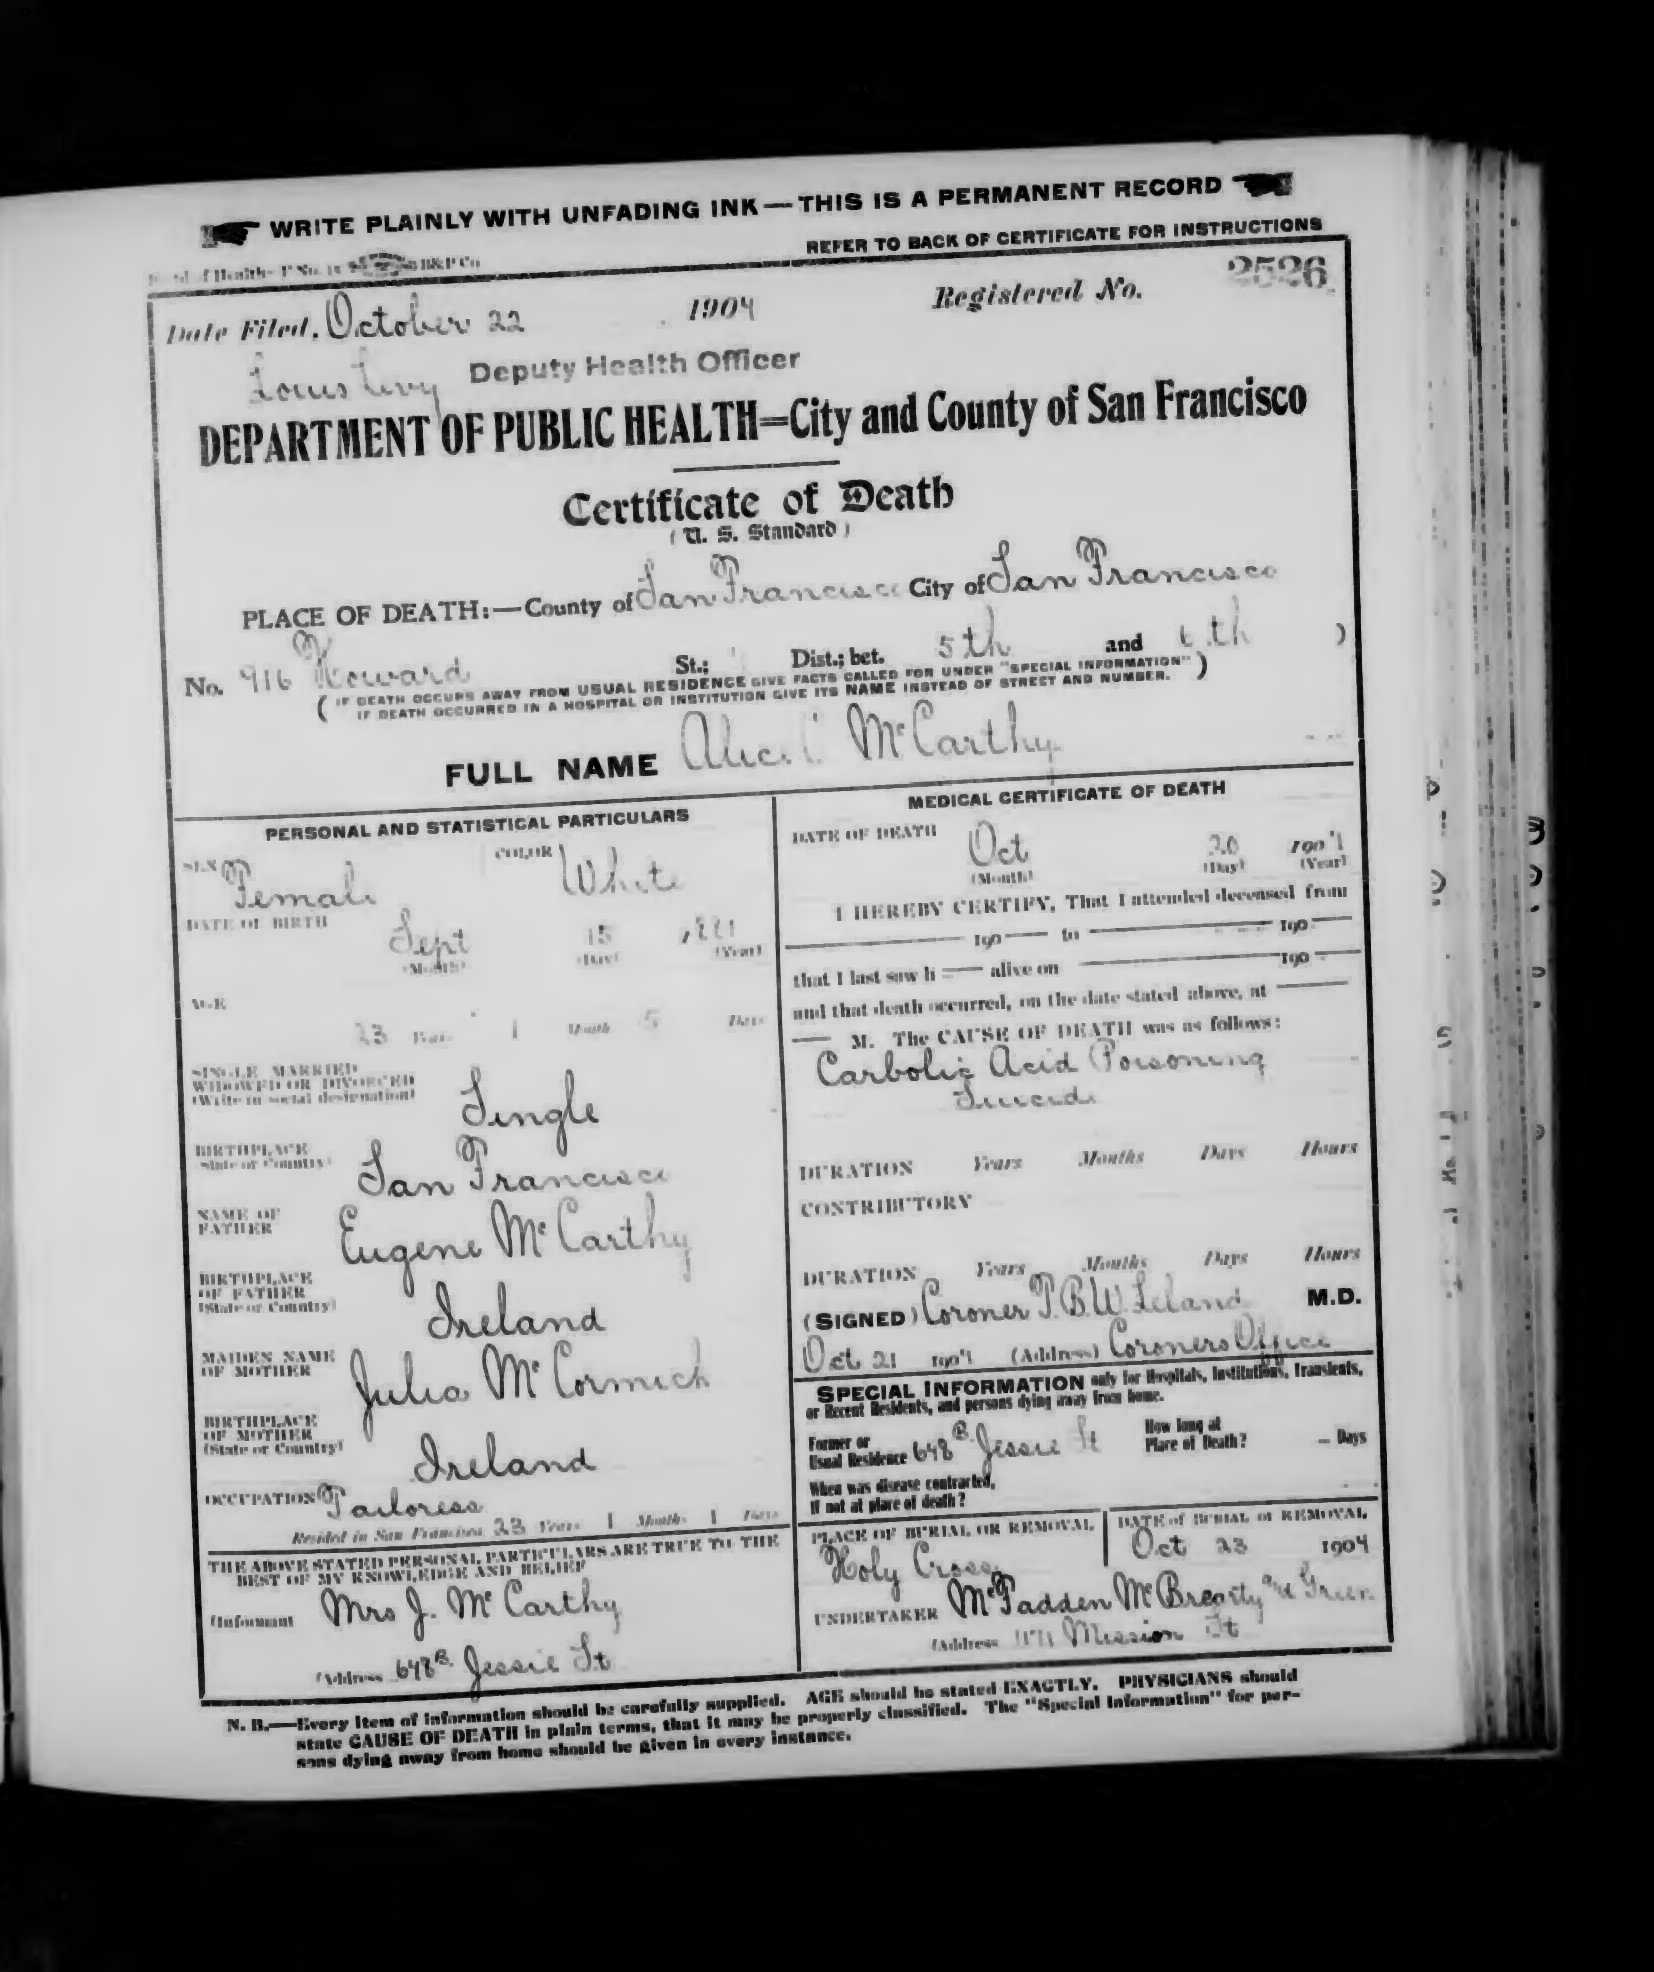 WRITE PLAINLY WITH UNFADING INK—THIS IS A PERMANENT RECORD
REFER TO BACK OF CERTIFICATE FOR INSTRUCTIONS
of Health B&P Co
Date Filed, October 22 1904 Registered No. 2526
Louis Levy Deputy Health Officer
DEPARTMENT OF PUBLIC HEALTH=City and County of San Francisco
Certificate of Death
(U. S. Standard)
PLACE OF DEATH:—County of San Francisco City of San Francisco
No. 916 Howard St.; Dist.; bet. 5th and 6th )
( IF DEATH OCCURS AWAY FROM USUAL RESIDENCE GIVE FACTS CALLED FOR UNDER "SPECIAL INFORMATION" )
IF DEATH OCCURRED IN A HOSPITAL OR INSTITUTION GIVE ITS NAME INSTEAD OF STREET AND NUMBER.
FULL NAME Alice McCarthy
PERSONAL AND STATISTICAL PARTICULARS
SEX Female COLOR White
DATE OF BIRTH
Sept 15 1881
(Month) (Day) (Year)
AGE
23 Years 1 Month 5 Days
SINGLE MARRIED
WIDOWED OR DIVORCED
(Write in social designation)
Single
BIRTHPLACE
(State or Country)
San Francisco
NAME OF
FATHER
Eugene McCarthy
BIRTHPLACE
OF FATHER
(State or Country)
Ireland
MAIDEN NAME
OF MOTHER
Julia McCormick
BIRTHPLACE
OF MOTHER
(State or Country)
Ireland
OCCUPATION Tailoress
Resided in San Francisco 23 Years 1 Months 1 Days
THE ABOVE STATED PERSONAL PARTICULARS ARE TRUE TO THE
BEST OF MY KNOWLEDGE AND BELIEF
(Informant Mrs J. McCarthy
(Address 648 B. Jessie St
MEDICAL CERTIFICATE OF DEATH
DATE OF DEATH
Oct 20 1904
(Month) (Day) (Year)
I HEREBY CERTIFY, That I attended deceased from
190 to 190
that I last saw h alive on 190
and that death occurred, on the date stated above, at
M. The CAUSE OF DEATH was as follows:
Carbolic Acid Poisoning
Suicide
DURATION Years Months Days Hours
CONTRIBUTORY
DURATION Years Months Days Hours
(SIGNED) Coroner T. B. W. Leland M.D.
Oct 21 1904 (Address) Coroners Office
SPECIAL INFORMATION only for Hospitals, Institutions, Transients,
or Recent Residents, and persons dying away from home.
Former or
Usual Residence 648 B. Jessie St
How long at
Place of Death? – Days
When was disease contracted,
If not at place of death?
PLACE OF BURIAL OR REMOVAL
Holy Cross
DATE of BURIAL or REMOVAL
Oct 23 1904
UNDERTAKER McFadden McBrearty and Green
(Address 1171 Mission St
N. B.—Every item of information should be carefully supplied. AGE should be stated EXACTLY. PHYSICIANS should
state CAUSE OF DEATH in plain terms, that it may be properly classified. The "Special Information" for per-
sons dying away from home should be given in every instance.